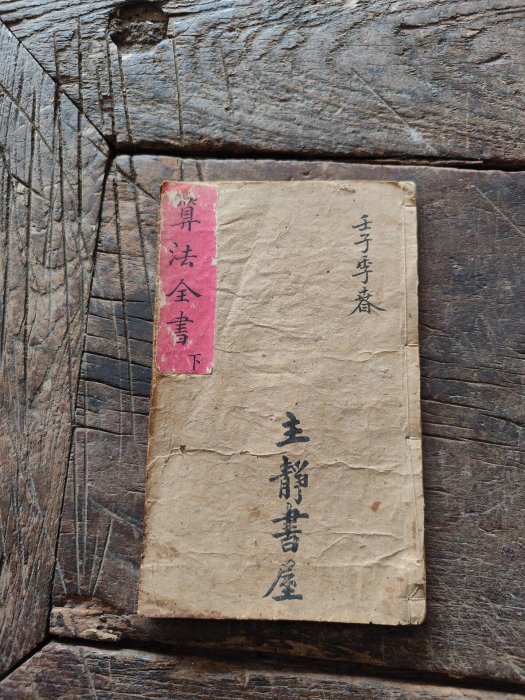 壬子季春
主靜書屋
算法全書下